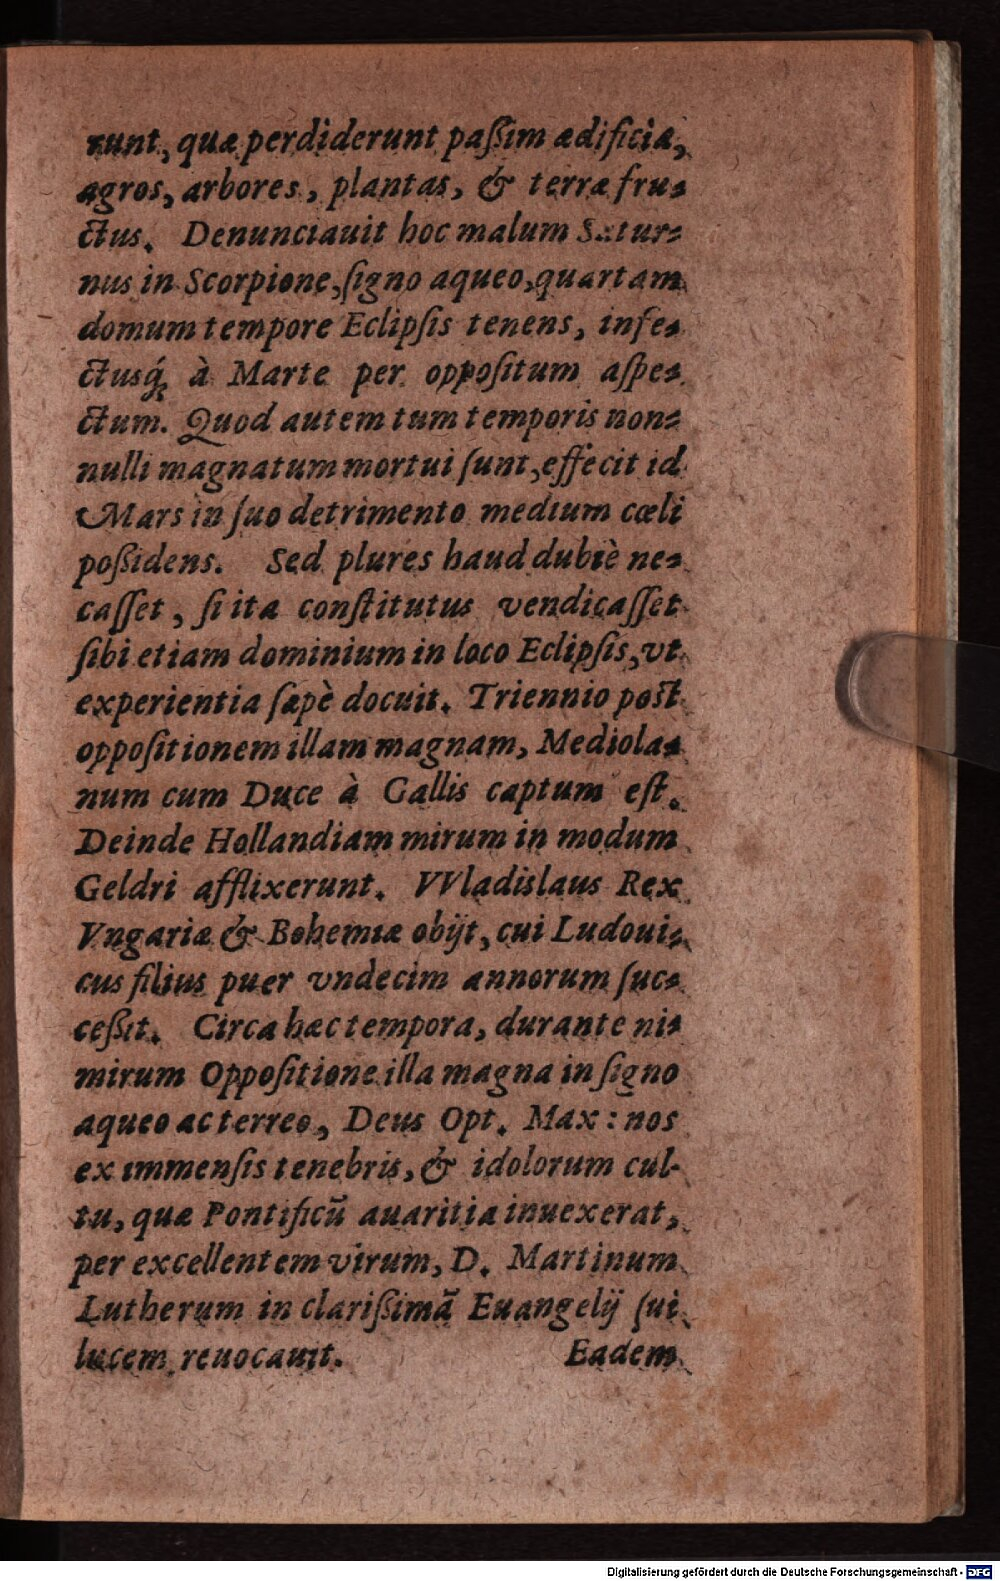 runt, quæ perdiderunt paßim ædificia,
agros, arbores, plantas, & terræ fru-
ctus. Denunciauit hoc malum Satur-
nus in Scorpione, ſigno aqueo, quartam
domum tempore Eclipſis tenens, infe-
ctusq́; à Marte per oppoſitum aſpe-
ctum. Quod autem tum temporis non-
nulli magnatum mortui ſunt, effecit id
Mars in ſuo detrimento medium cœli
poßidens. Sed plures haud dubiè ne-
caſſet, ſi ita conſtitutus vendicaſſet
ſibi etiam dominium in loco Eclipſis, vt
experientia ſæpè docuit. Triennio poſt
oppoſitionem illam magnam, Mediola-
num cum Duce à Gallis captum eſt.
Deinde Hollandiam mirum in modum
Geldri afflixerunt. VVladislaus Rex
Vngariæ & Bohemiæ obijt, cui Ludoui-
cus filius puer vndecim annorum ſuc-
ceßit. Circa hæc tempora, durante ni-
mirum Oppoſitione illa magna in ſigno
aqueo ac terreo, Deus Opt. Max: nos
ex immenſis tenebris, & idolorum cul-
tu, quæ Pontificū auaritia inuexerat,
per excellentem virum, D. Martinum
Lutherum in clarißimā Euangelij ſui
lucem reuocauit. Eadem
Digitalisierung gefördert durch die Deutsche Forschungsgemeinschaft - DFG